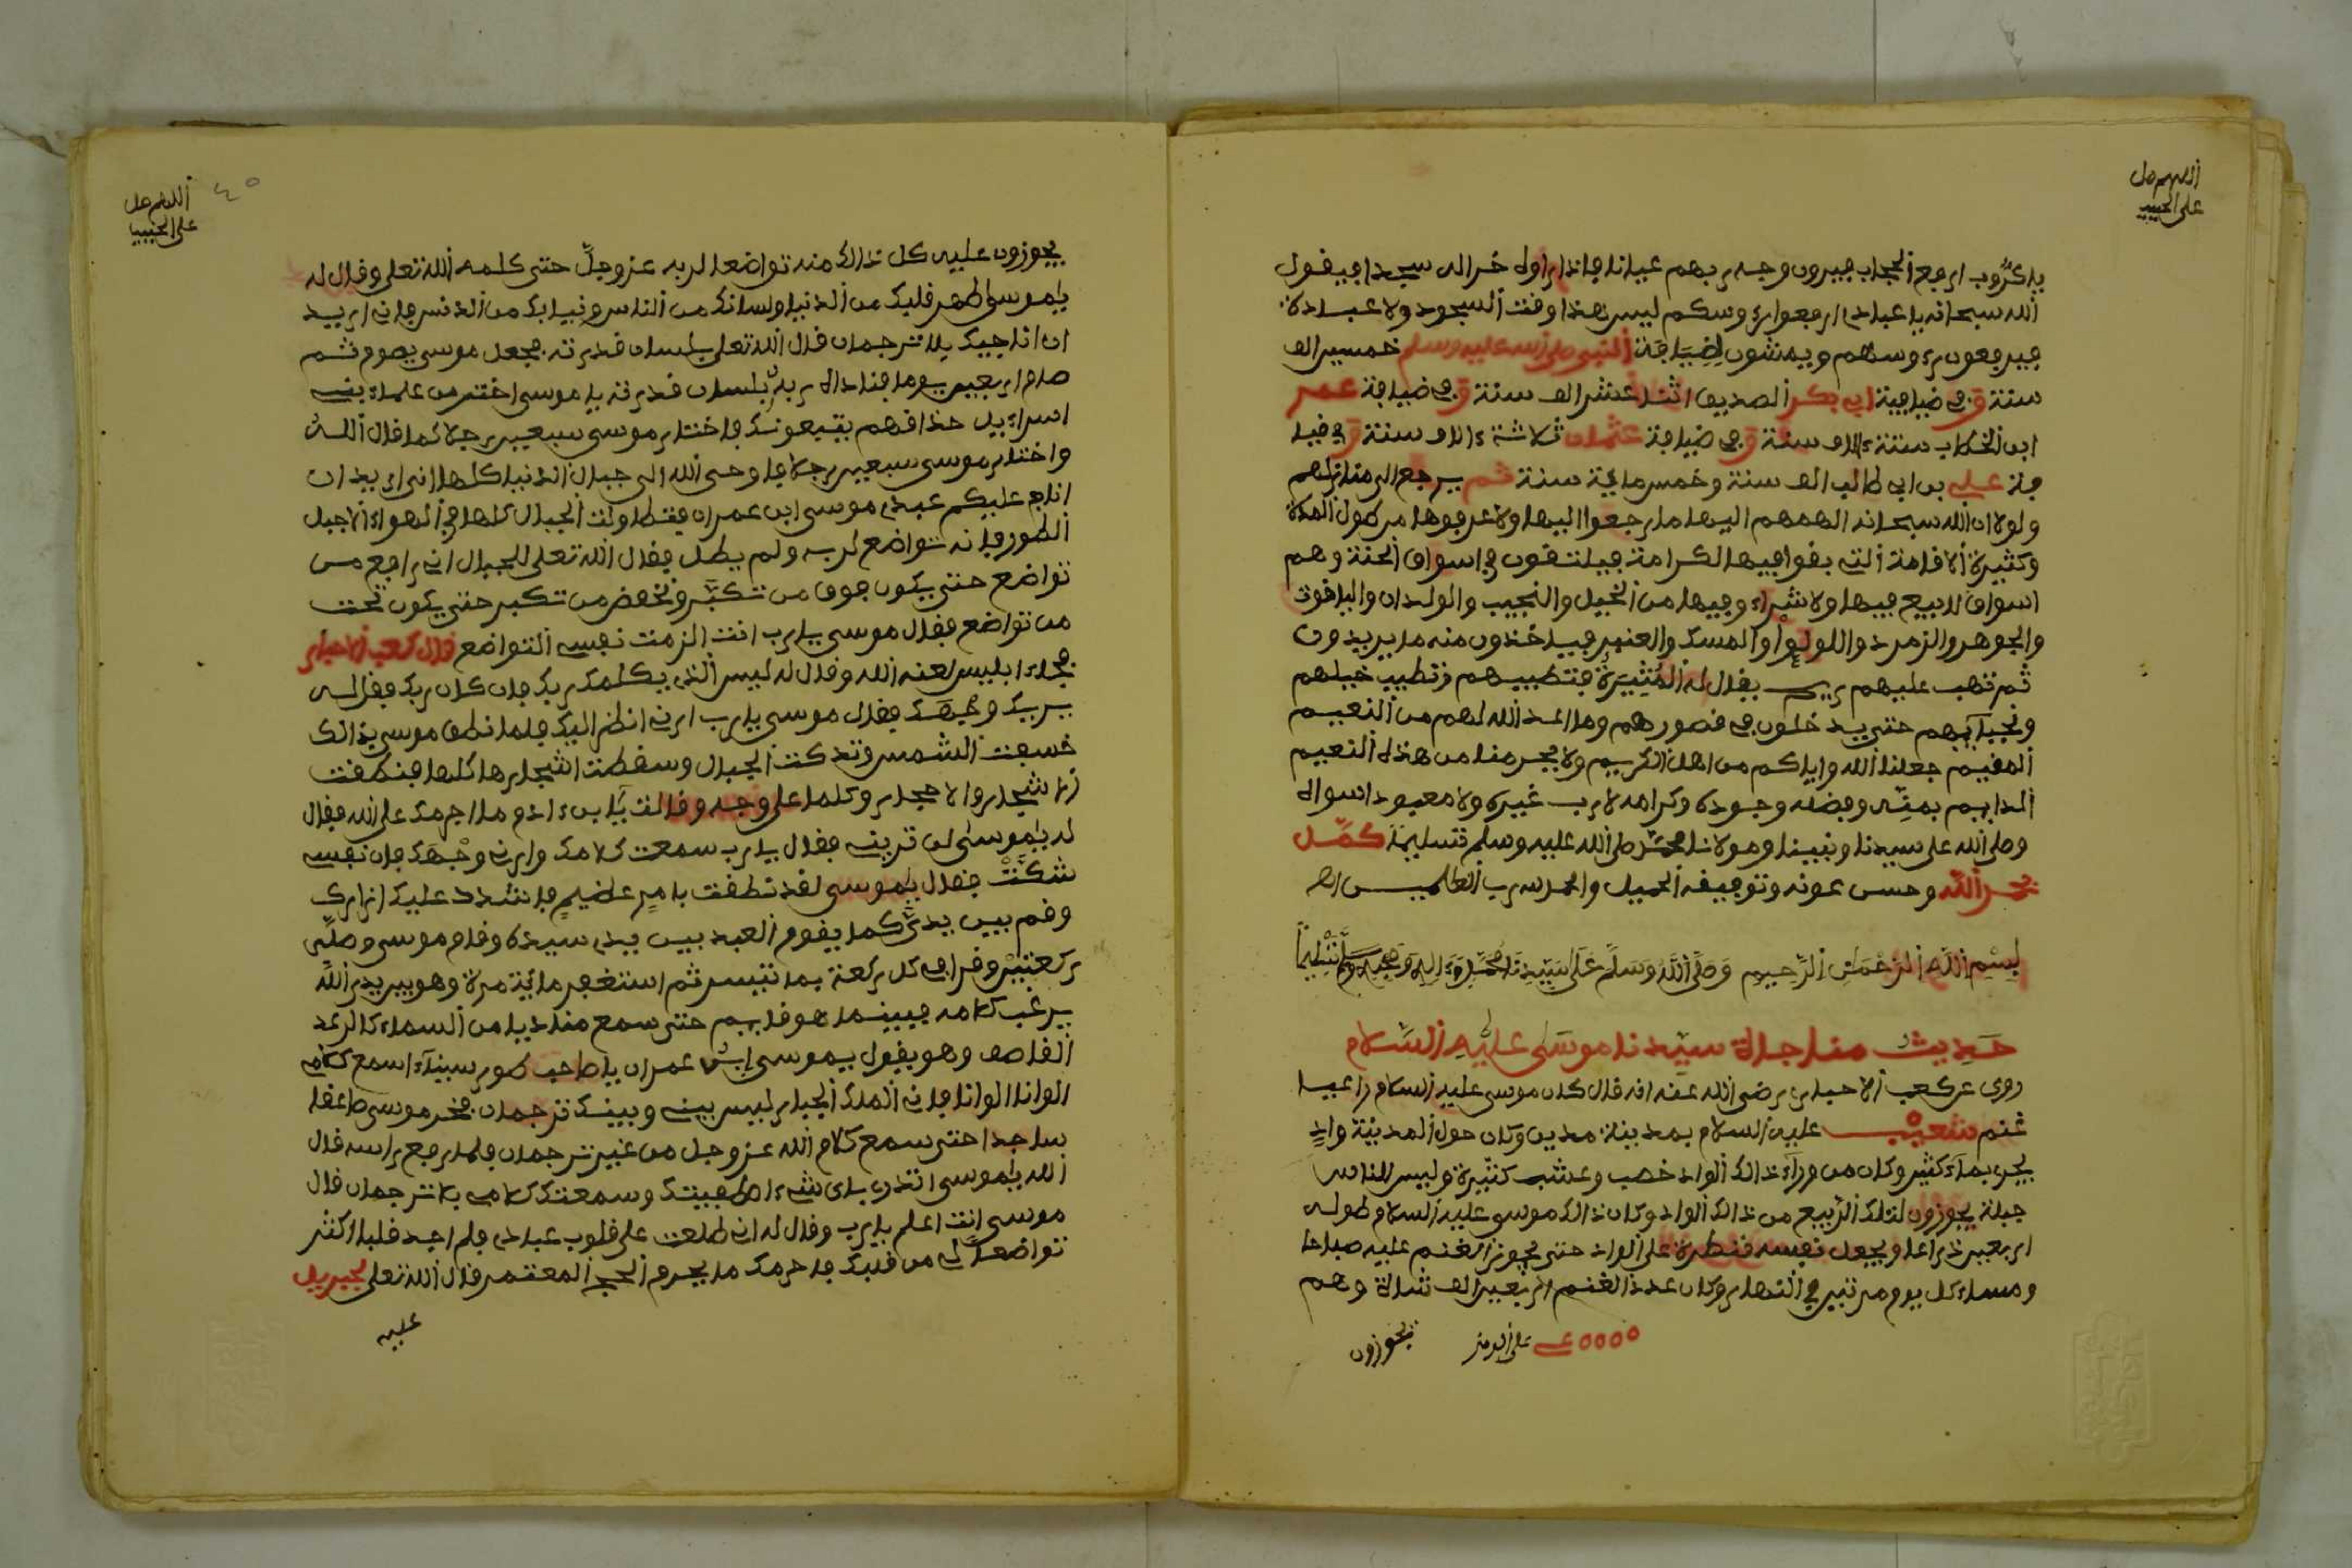 اللهم صل
على الحبيب
يا كروب ارفع الحجاب فيرون وجه ربهم عيانا فاذا راوه خرا له سجدا فيقول
الله سبحانه يا عبادي ارفعوا رءوسكم ليس هذا وقت السجود ولا عبادة
فيرفعون رءوسهم ويمشون لضيافة النبي صلى الله عليه وسلم خمسين الف
سنة وفي ضيافة ابي بكر الصديق اثنا عشر الف سنة وفي ضيافة عمر
ابن الخطاب ستة ءالاف سنة وفي ضيافة عثمان ثلاثة ءالاف سنة وفي ضيا
فة علي بن ابي طالب الف سنة وخمس مائة سنة ثم يرجع الى منازلهم
ولولا ان الله سبحانه الهمهم اليها ما رجعوا اليها ولا عرفوها من طول المدة
وكثيرة الاقامة التي بقوا فيها الكرامة فيلتقون في اسواق الجنة وهم
اسواق لا بيع فيها ولا شراء وفيها من الخيل والنجيب والولدان والياقوت
والجوهر والزمرد واللولؤ والمسك والعنبر فياخذون منه ما يريدون
ثم تهب عليهم ريح يقال له المثيرة فتطييهم وتطيب خيلهم
ونجيآيبهم حتى يدخلون في قصورهم وما اعد الله لهم من النعيم
المقيم جعلنا الله واياكم من اهل الكريم ولا يحرمنا من هذه النعيم
الدايم بمنه وفضله وجوده وكرامه لا رب غيره ولا معبود اسواه
وصلى الله على سيدنا ونبينا ومولانا محمد صلى الله عليه وسلم تسليما كمل
بحمد الله وحسن عونه وتوفيقه الجميل والحمد لله رب العالميـــن اهـ
بسم الله الرحمن الرحيم وصلى الله وسلم على سيدنا محمد وءاله وصحبه وسلم تسليما
حديث مناجاة سيدنا موسى عليه السلام
روى عن كعب الاحبار رضي الله عنه انه قال كان موسى عليه السلام راعيا
غنم شعيب عليه السلام بمدينة مدين وكان حول المدينة واد
يجري بماء كثير وكان من وراء ذالك الواد خصب وعشب كثيرة وليس للناس
حيلة يجوزون لتلك الربيع من ذالك الواد وكان ذالك موسى عليه السلام طوله
اربعين ذراعا ويجعل نفسه قنطرة على الواد حتى يجوز الغنم عليه صباحا
ومساء كل يوم مرتين في النهار وكان عدد الغنم اربعين الف شاة وهم
يجوزون
اللهم صل
على الحبيب
٤٥
يجوزون عليه كل ذالك منه تواضعا لربه عز وجل حتى كلمه الله تعلى وقال له
يا موسى اطهر قلبك من الدنيا ولسانك من الناس وثيابك من الدنس فاني اريد
ان اناجيك بلا ترجمان قال الله تعلى بلسان قدرته فجعل موسى يصوم ثم
صام اربعين يوما فناداه ربه بلسان قدرته يا موسى اختر من علماء بني
اسراءيل حذاقهم يتبعونك فاختار موسى سبعين رجلا كما قال الله
واختار موسى سبعين رجلا فاوحى الله الى جبال الدنيا كلها اني اريد ان
اناج عليكم عبدي موسى ابن عمران فتطاولت الجبال كلها في الهواء الا جبل
الطور فانه تواضع لربه ولم يطل فقال الله تعلى للجبال اني رافع من
تواضع حتى يكون فوق من تكبر ونخفض من تكبر حتى يكون تحت
من تواضع فقال موسى يا رب انت الزمت نفسي التواضع قال كعب الاحبار
فجاء ابليس لعنه الله وقال له ليس الذي يكلمك ربك فان كان ربك فقل له
يريك وجهك فقال موسى يا رب ارني انظر اليك فلما نطق موسى بذالك
خسفت الشمس وتدكت الجبال وسقطت اشجارها كلها فنطقت
الاشجار والاحجار وكلما على وجه وقالت يا ابن ءادم ما اجرمك على الله فقال
له يا موسى لن تريني فقال يا رب سمعت كلامك وارني وجهك فان نفسي
شكت فقال يا موسى لقد نطقت بامر عاضيم فاشدد عليك ازارك
وقم بين يدي كما يقوم العبد بين يدي سيده وقام موسى وصلى
ركعتين وقرا في كل ركعة بما تيسر ثم استغفر مائة مرة وهو يريد الله
يرغب كلامه فبينما هو قايم حتى سمع مناديا من السماء كالرعد
القاصف وهو يقول يموسى ابن عمران يا صاحب طور سيناء اسمع كلامي
الوانا الوانا فاني الملك الجبار ليس بيني وبينك ترجمان فخر موسى صاعقا
ساجدا حتى سمع كلام الله عز وجل من غير ترجمان فلما رفع راسه قال
الله يا موسى اتدري باي شيء اصطفيتك وسمعتك كلامي بلا ترجمان قال
موسى انت اعلم يا رب وقال له اني طلعت على قلوب عبادي فلم اجد قلبا اكثر
تواضعا لي من قلبك فاحرمك ما يحرم الحج المعتمر قال الله تعلى لجبريل
عليه